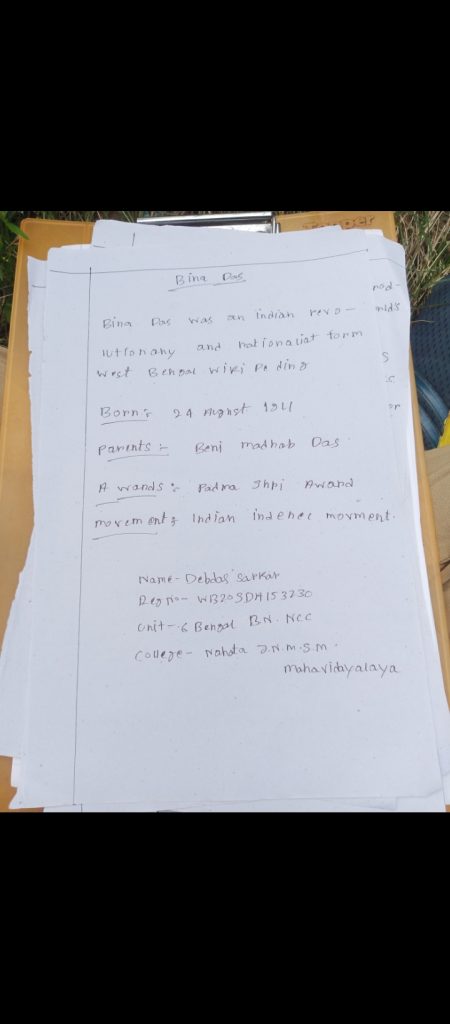 Bina Das
Bina Das was an indian revo-
lutionany and nationaliat form
West Bengal wiki Pe ding
Born:- 24 August 1911
Parents:- Beni madhab Das
A wands:- Padma Shri Award
movement:- Indian indenec movment.
Name- Debdas Sarkar
Reg No- WB20SDA153230
Unit- 6 Bengal BN. NCC
College- Nahata J.N.M.S.M.
Mahavidayalaya